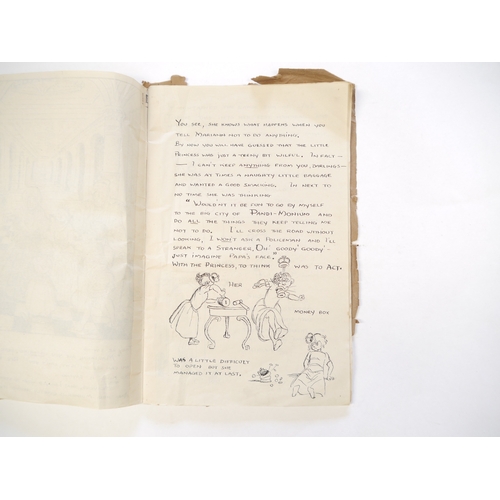 You see, she knows what happens when you
tell Mariann not to do anything.
By now you will have guessed that the little
Princess was just a teeny bit wilful. In fact —
— I can't keep anything from you, darlings —
she was at times a naughty little baggage
and wanted a good smacking. In next to
no time she was thinking
"Would it be fun to go by myself
to the big city of Pandi-Monium and
do all the things they keep telling me
not to do. I'll cross the road without
looking, I won't ask a Policeman and I'll
speak to a stranger. Oh' goody' goody' —
just imagine Papa's face."
With the Princess, to think was to Act.
Her
Money box
was a little difficult
to open but she
managed it at last.